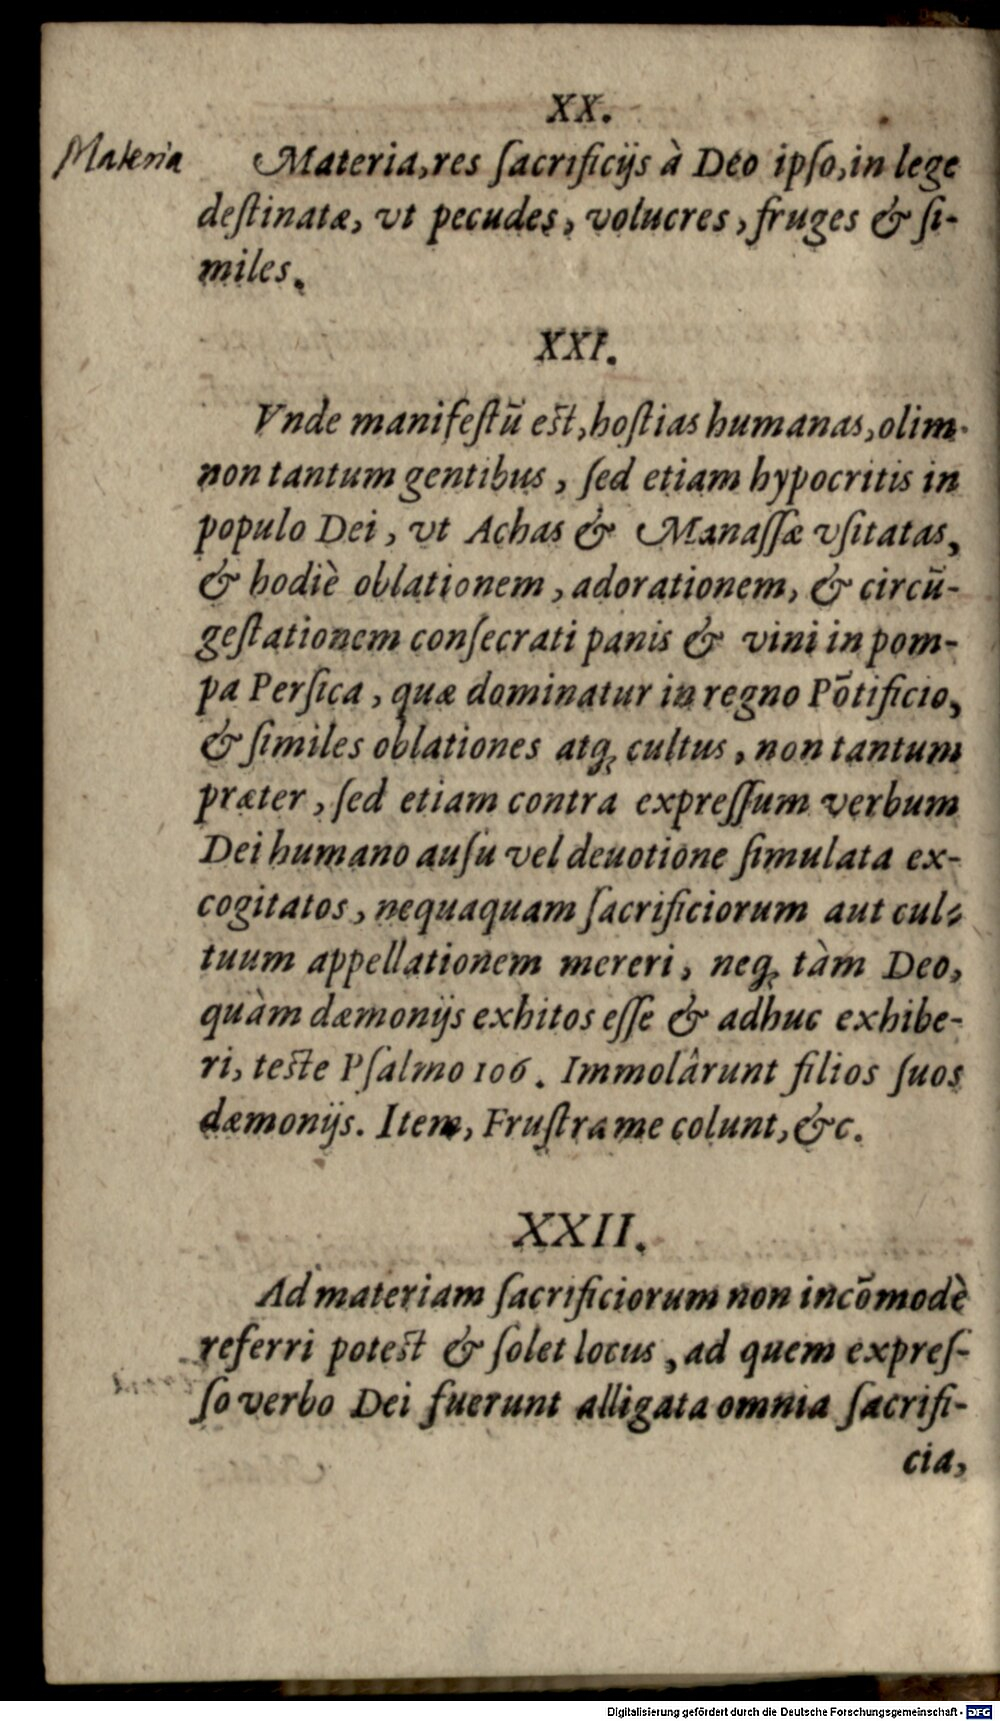 XX.
Materia
Materia, res ſacrificijs à Deo ipſo, in lege
deſtinatæ, vt pecudes, volucres, fruges & ſi-
miles.
XXI.
Vnde manifeſtũ eſt, hoſtias humanas, olim
non tantum gentibus, ſed etiam hypocritis in
populo Dei, vt Achas & Manaſſæ vſitatas,
& hodiè oblationem, adorationem, & circũ-
geſtationem conſecrati panis & vini in pom-
pa Perſica, quæ dominatur in regno Põtificio,
& ſimiles oblationes atq; cultus, non tantum
præter, ſed etiam contra expreſſum verbum
Dei humano auſu vel deuotione ſimulata ex-
cogitatos, nequaquam ſacrificiorum aut cul-
tuum appellationem mereri, neq; tàm Deo,
quàm dæmonijs exhitos eſſe & adhuc exhibe-
ri, teſte Pſalmo 106. Immolârunt filios ſuos
dæmonijs. Item, Fruſtra me colunt, &c.
XXII.
Ad materiam ſacrificiorum non incõmodè
referri poteſt & ſolet locus, ad quem expreſ-
ſo verbo Dei fuerunt alligata omnia ſacrifi-
cia,
Digitalisierung gefördert durch die Deutsche Forschungsgemeinschaft - DFG